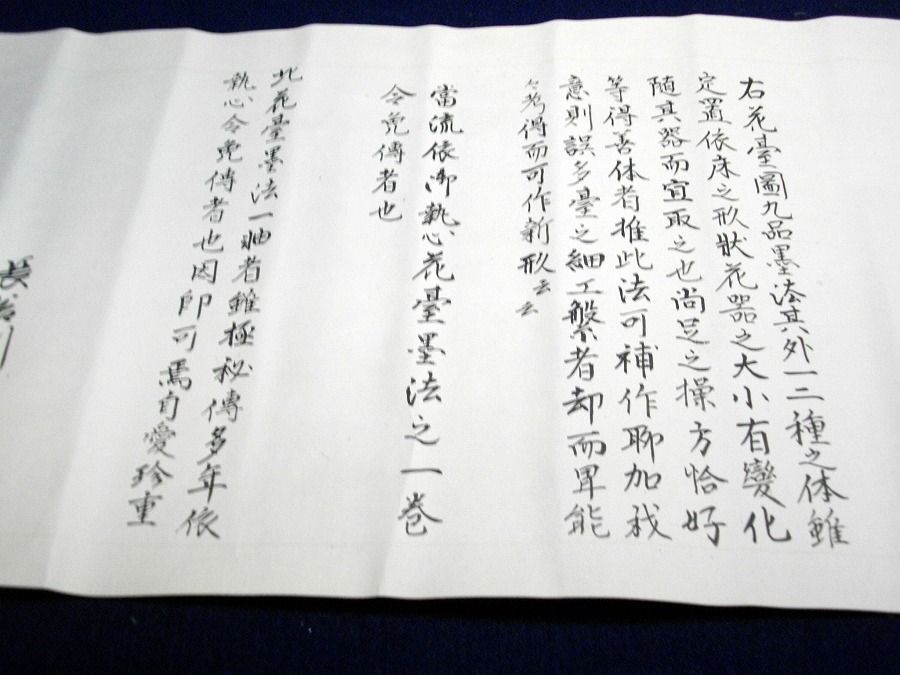 右花臺圖九品墨法其外一二種之体雖
定置依床之形狀花器之大小有變化
随其器而宜取之也尚足之操方恰好
等得善体者推此法可補作聊加我
意則誤多臺之細工繁者却而畢能
々考得而可作新形云云
當流依御執心花臺墨法之一巻
令免傳者也
此花臺墨法一軸者雖極秘傳多年依
執心令免傳者也因即可焉自愛珍重
長